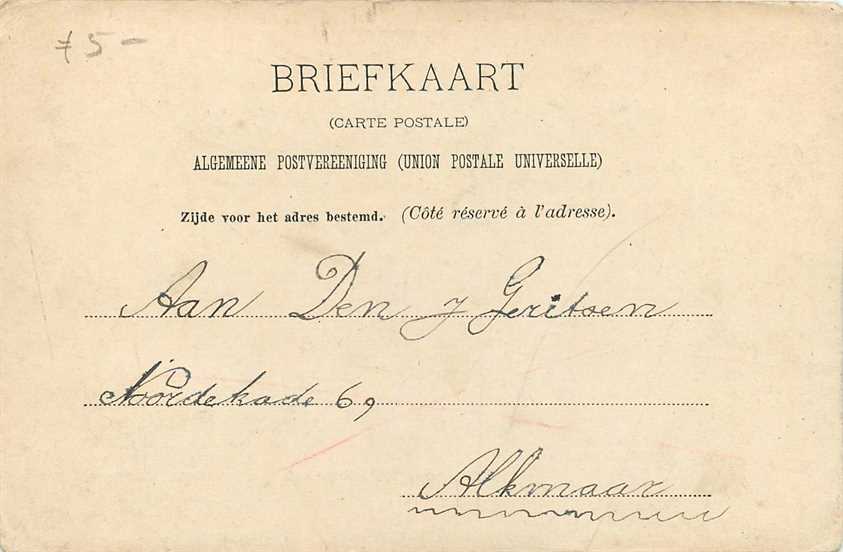 75-
BRIEFKAART
(CARTE POSTALE)
ALGEMEENE POSTVEREENIGING (UNION POSTALE UNIVERSELLE)
Zijde voor het adres bestemd. (Côté réservé à l'adresse).
Aan Den J Geritsen
Noordekade 69
Alkmaar